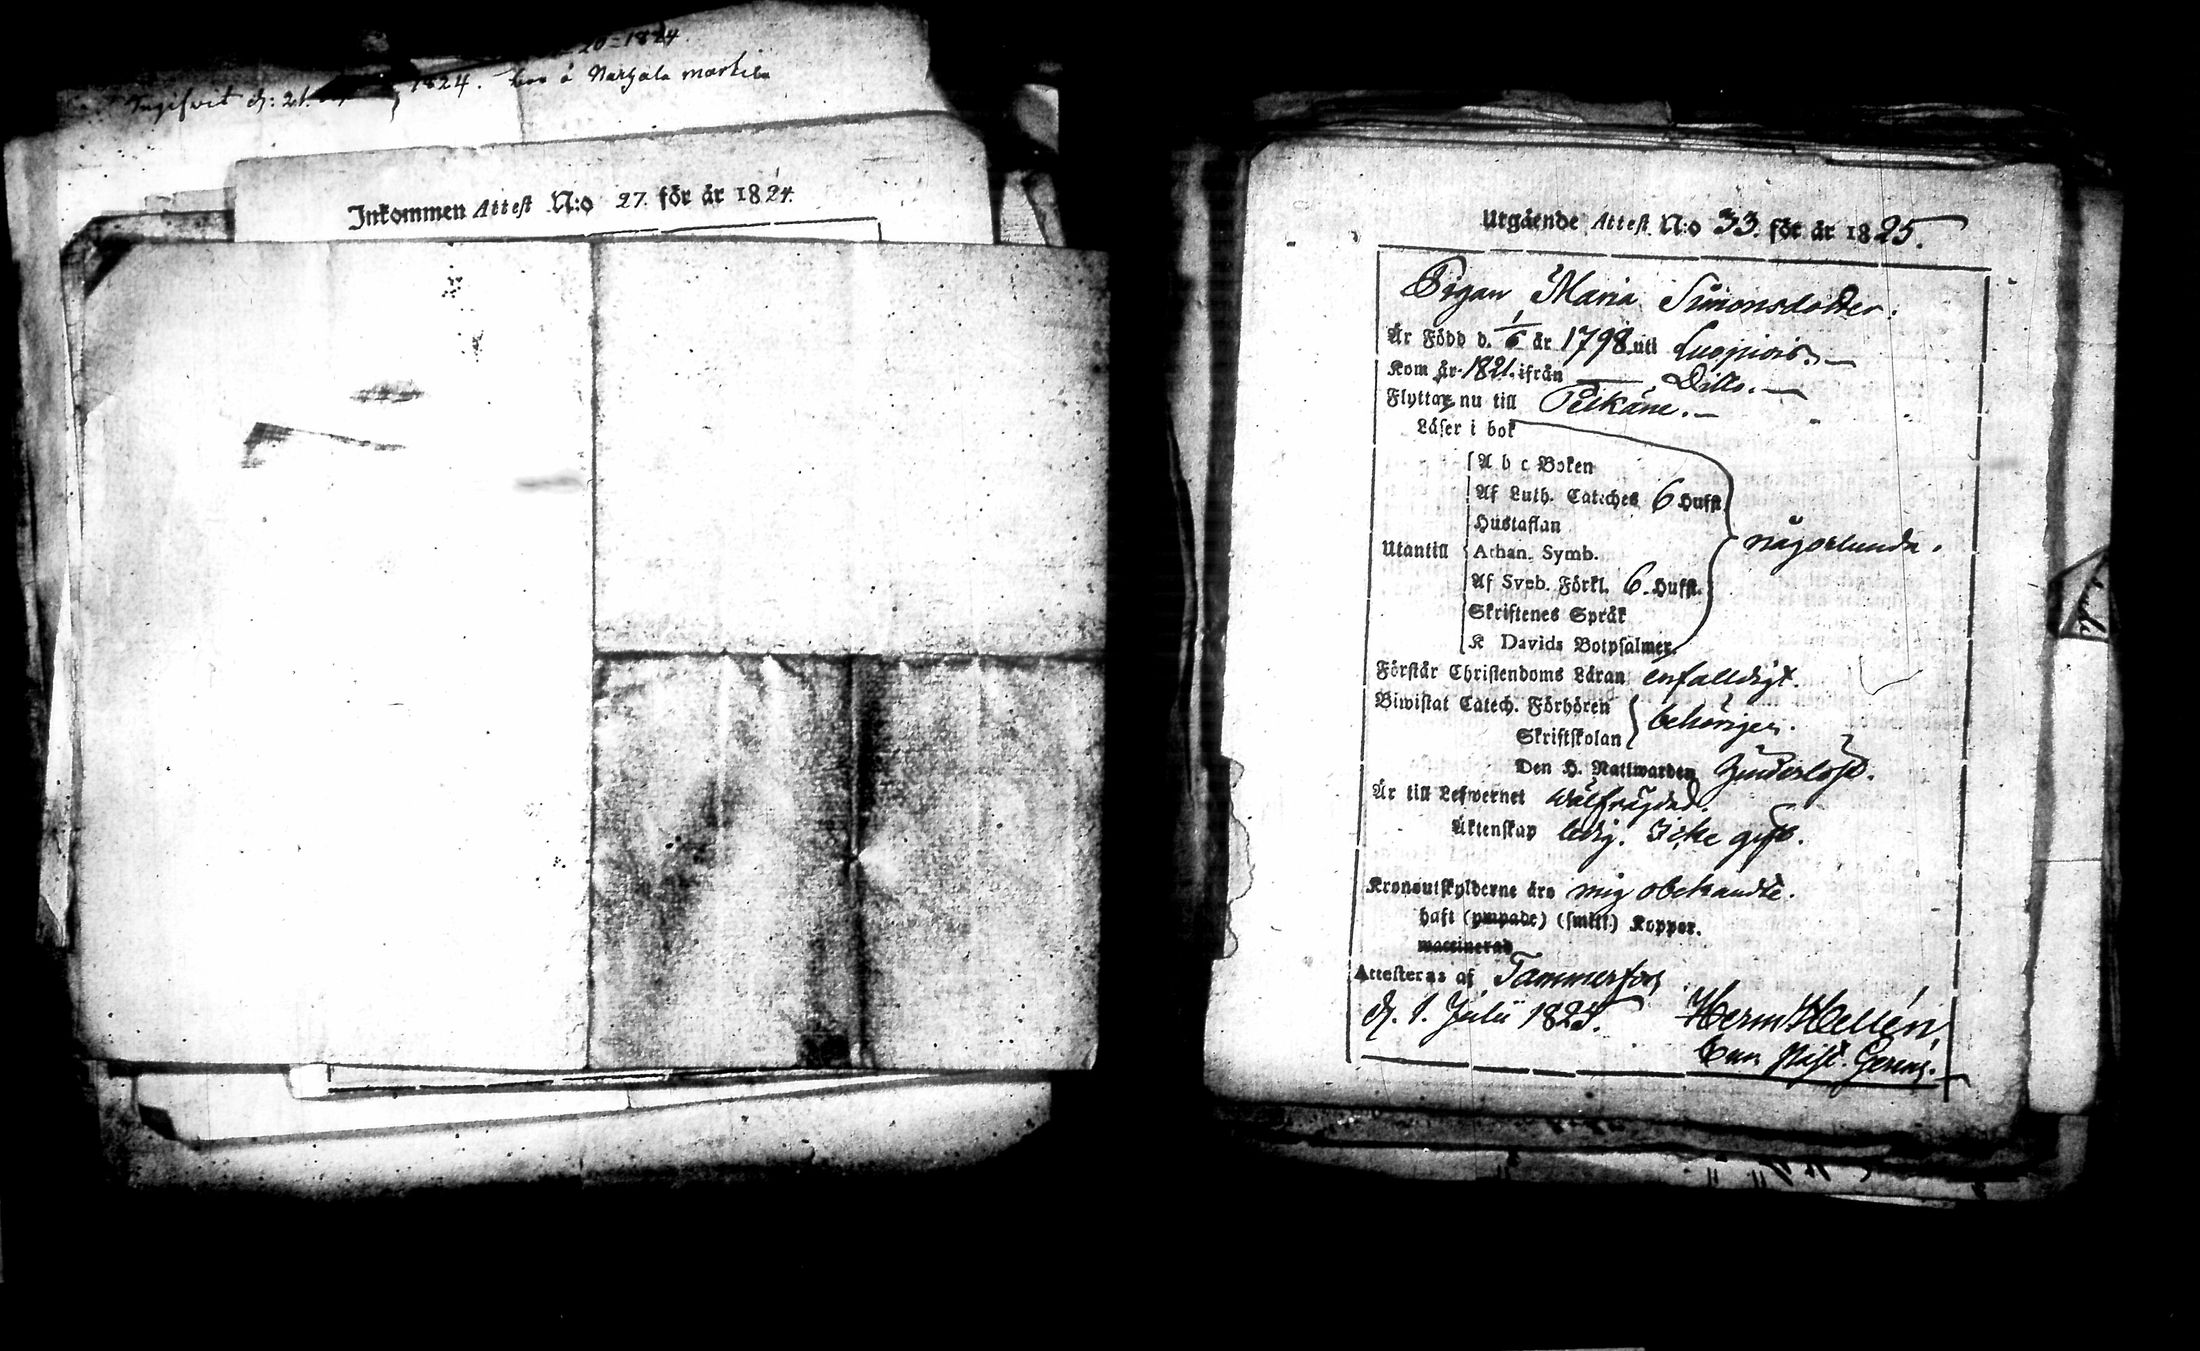 20 = 1824.
1824.
Inkommen Attest N:o 27. för år 1824.
Utgående Attest N:o 33. för år 1825.
Pigan Maria Simonsdotter.
Är Född d. 1/6 år 1798 uti Luopiois.
Kom år 1821. ifrån Ditto.
Flyttar nu till Pelkäne.
Läser i bok
A b c Boken
Af Luth. Cateches 6 Hufst.
Hustaflan
Utantill Athan. Symb. någorlunda.
Af Sveb. Förkl. 6. Hufst.
Skriftenes Språk
K Davids Botpsalmer.
Förstår Christendoms Läran enfalldigt.
Biwistat Catech. Förhören
Skriftskolan behörigen.
Den H. Nattwarden
Är till Lefwernet wälfrägdad.
Äktenskap ledig. Icke gift.
Kronoutskylderne äro mig obekandte.
haft (ympade) (smitt.) Koppor.
waccinerad
Attesteras af Tammerfors
d. 1. Julii 1825. Herm Hellén,